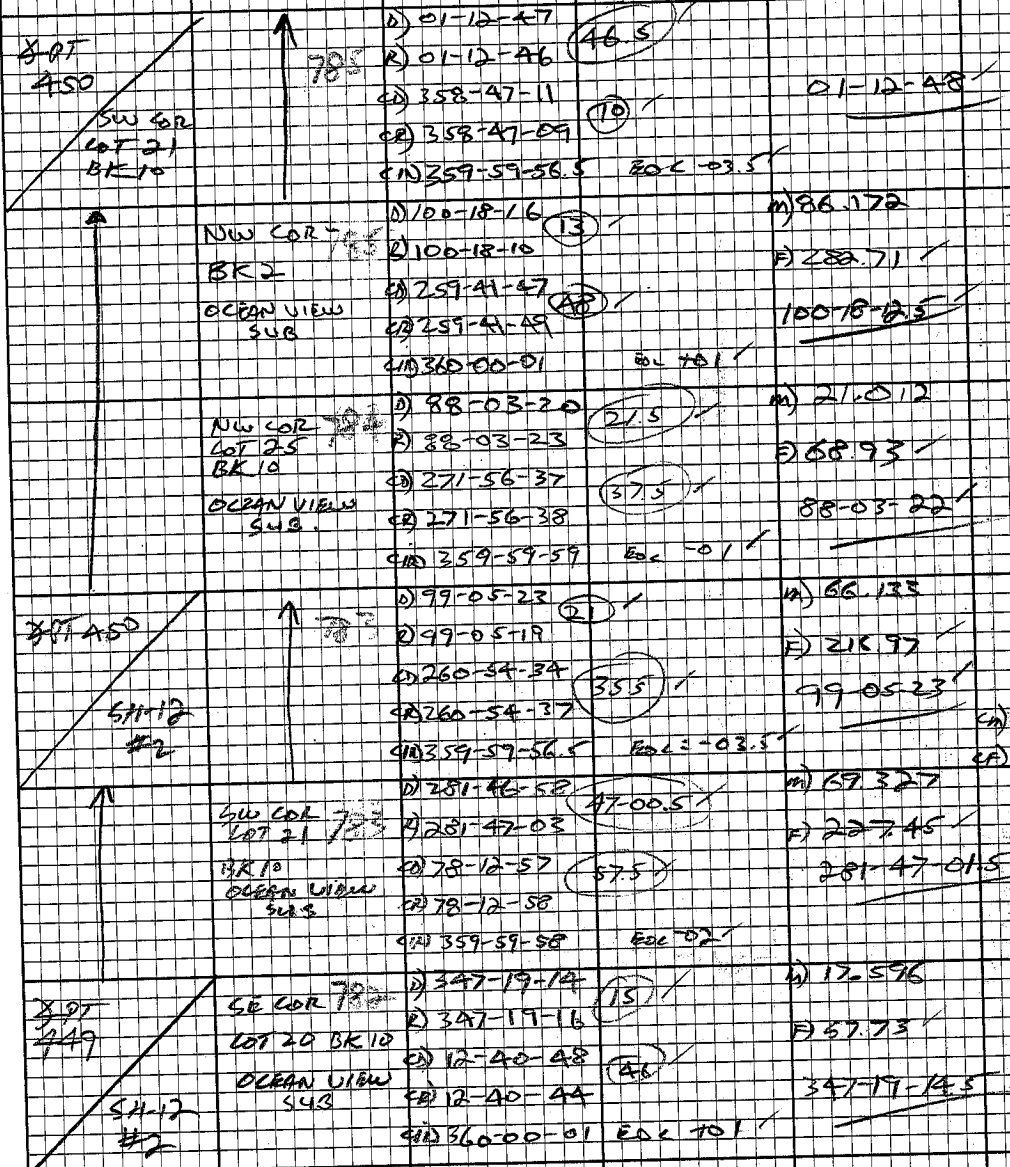 PT
450
SW COR
LOT 21
BK 10
785
D) 01-12-47
46.5
R) 01-12-46
01-12-48
358-47-11
10
358-47-09
359-59-56.5 EOC -03.5
NW COR
BK 2
OCEAN VIEW
SUB
D) 100-18-16
13
R) 100-18-10
259-41-47
48
259-41-49
360-00-01 EOC +01
M) 86.172
F) 282.71
100-18-12.5
NW COR
LOT 25
BK 10
OCEAN VIEW
SUB.
D) 88-03-20
21.5
R) 88-03-23
271-56-37
37.5
271-56-38
359-59-59 EOC -01
M) 21.012
F) 68.93
88-03-22
PT 450
SH-12
#2
D) 99-05-23
21
R) 99-05-19
260-54-34
35.5
260-54-37
359-59-56.5 EOC = -03.5
M) 66.133
F) 216.97
99-05-23
SW COR
LOT 21 783
BK 10
OCEAN VIEW
SUB
D) 281-46-58
47-00.5
R) 281-47-03
78-12-57
57.5
78-12-58
359-59-58 EOC -02
M) 69.327
F) 227.45
281-47-01.5
PT
449
SH-12
#2
SE COR 782
LOT 20 BK 10
OCEAN VIEW
SUB
D) 347-19-14
15
R) 347-19-16
12-40-48
46
12-40-44
360-00-01 EOC +01
M) 17.596
F) 57.73
347-19-14.5